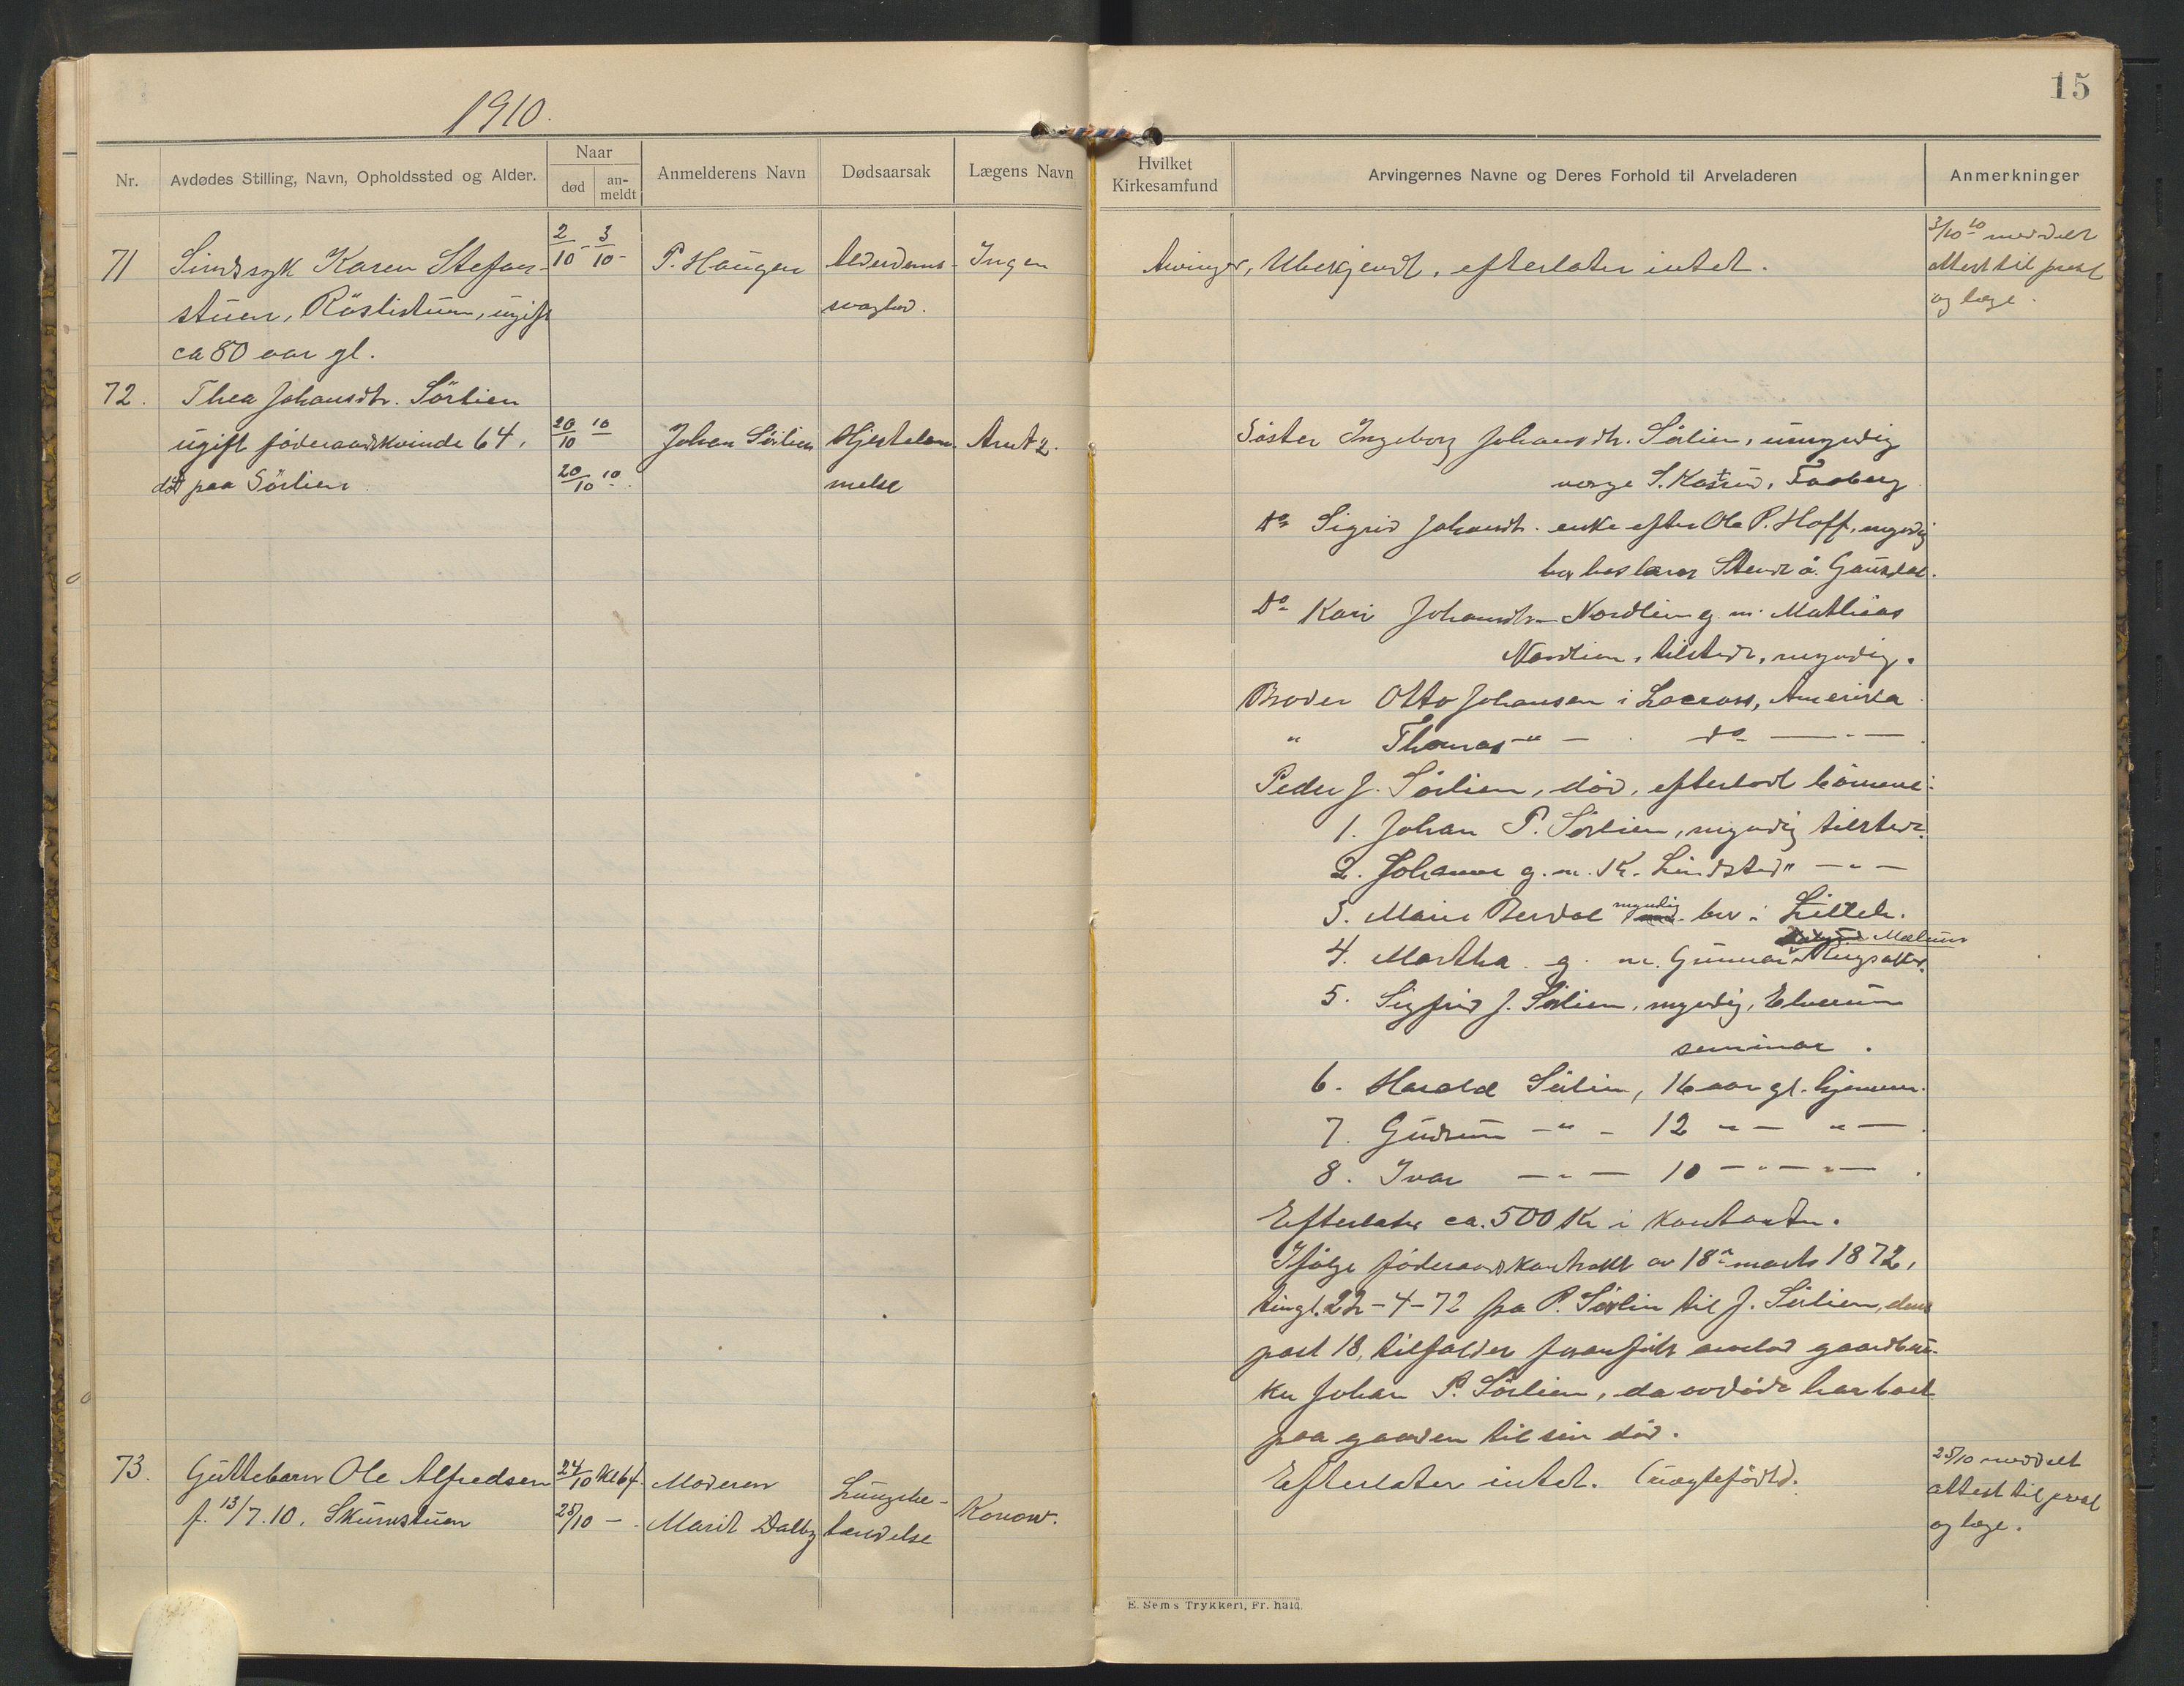 15
1910.
Nr.
Avdødes Stilling, Navn, Opholdssted og Alder.
Naar
død
an-
meldt
Anmelderens Navn
Dødsaarsak
Lægens Navn
Hvilket
Kirkesamfund
Arvingernes Navne og Deres Forhold til Arveladeren
Anmerkninger
71
Sindssyk Karen Stefan-
stuen, Röslistuen, ugift
ca 80 aar gl.
2/10 - 3/10 -
P. Haugen
Alderdoms-
svaghed.
Ingen
Arvinger, Ubekjendt, efterlater intet.
3/10 10 meddelt
attest til prest
og læge.
72.
Thea Johansdtr. Sörlien
ugift föderaadskvinde 64,
död paa Sörlien.
20/10 10
20/10 10
Johan Sörlien
Hjertelam-
melse
Arnt 2.
Söster Ingeborg Johansdtr. Sörlien, umyndig
verge S. Kastrud, Faaberg
do Sigrid Johansdt. enke efter Ole P. Hoff, myndig
bor hos lærer Stende ö. Gausdal.
do Kari Johansdtr. Nordlien g. m. Mathias
Nordlien, tilstede, myndig.
Broder Otto Johansen i Lacross, Amerika
" Thomas -"- do - " -
Peder J. Sörlien, död, efterladt börnene:
1. Johan P. Sörlien, myndig tilstede.
2. Johanne g. m. K. Lindstad " - " -
3. Marie Berdal myndig bor i Lilleh.
4. Martha g. m. Gunnar Ringsaker.
Mælum
5. Sigfrid J. Sörlien, myndig, Elverum
seminar.
6. Harald Sörlien, 16 aar gl. hjemme.
7. Gudrun - " - 12 " - " -
8. Ivar - " - 10 - " - " -
Efterlater ca. 500 Kr i kontanter.
Ifölge föderaadskontrakt av 18de marts 1872,
tingl. 22-4-72 fra P. Sörlien til J. Sörlien, dens
post 18, tilfalder foranförte arvelod gaardbru-
ker Johan P. Sörlien, da avdöde har boet
paa gaarden til sin död.
73.
Guttebarn Ole Alfredsen
f. 13/7.10. Skurustuen
24/10 Kl 6 f.
25/10 -
Moderen
Marit Dalby
Lungebe-
tændelse
Konow.
Efterlater intet. (uægtefödt).
25/10 meddelt
attest til prest
og læge.
E. Sem's Trykkeri, Fr. hald.